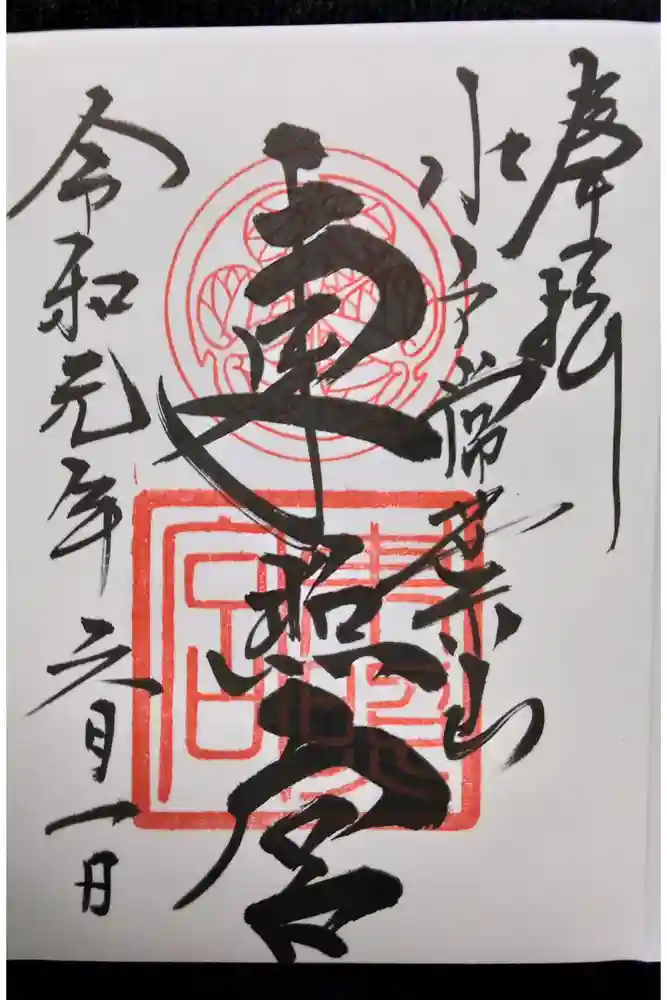 奉拝
水戸常葉山
東照宮
令和元年六月一日
東照宮